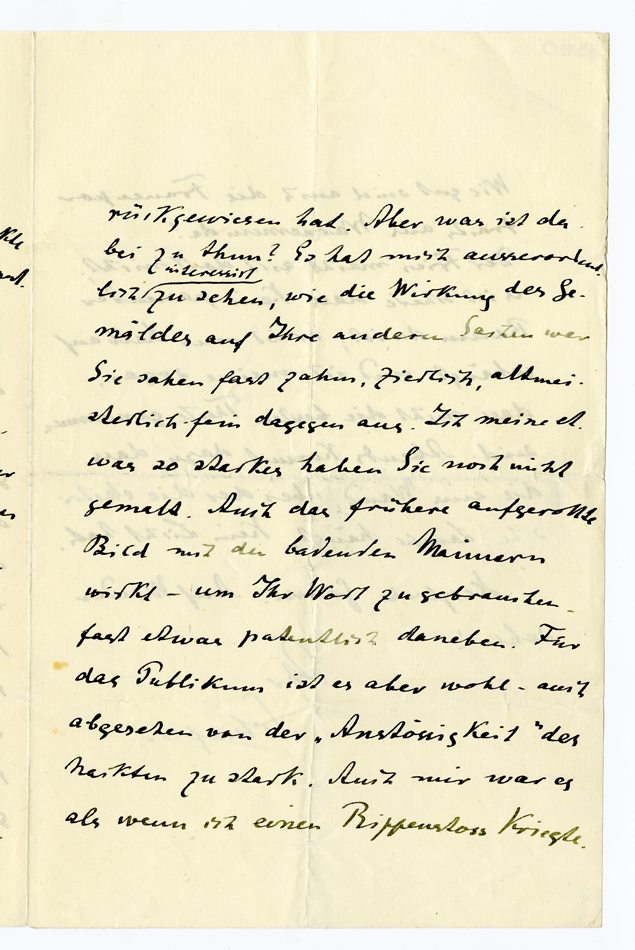 rückgewiesen hat. Aber was ist da-
bei zu thun? Es hat mich ausserordent-
interessirt
lich zu sehen, wie die Wirkung des Ge-
mäldes auf Ihre andern Sachen war
Sie sahen fast zahm, zierlich, altmei-
sterlich-fein dagegen aus. Ich meine et-
was so starkes haben Sie noch nicht
gemalt. Auch das frühere aufgerollte
Bild mit den badenden Männern
wirkt – um Ihr Wort zu gebrauchen –
fast etwas patentlich daneben. Für
das Publikum ist es aber wohl – auch
abgesehen von der „Anstössigkeit" des
Nackten zu stark. Auch mir war es
als wenn ich einen Rippenstoss kriegte.